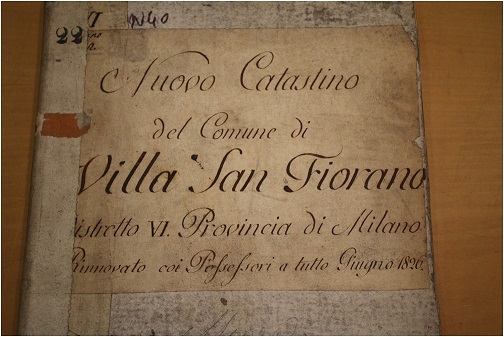 N40
22
Nuovo Catastino
del Comune di
Villa San Fiorano
Distretto VI. Provincia di Milano
Rinnovato coi Possessori a tutto Giugno 1820.